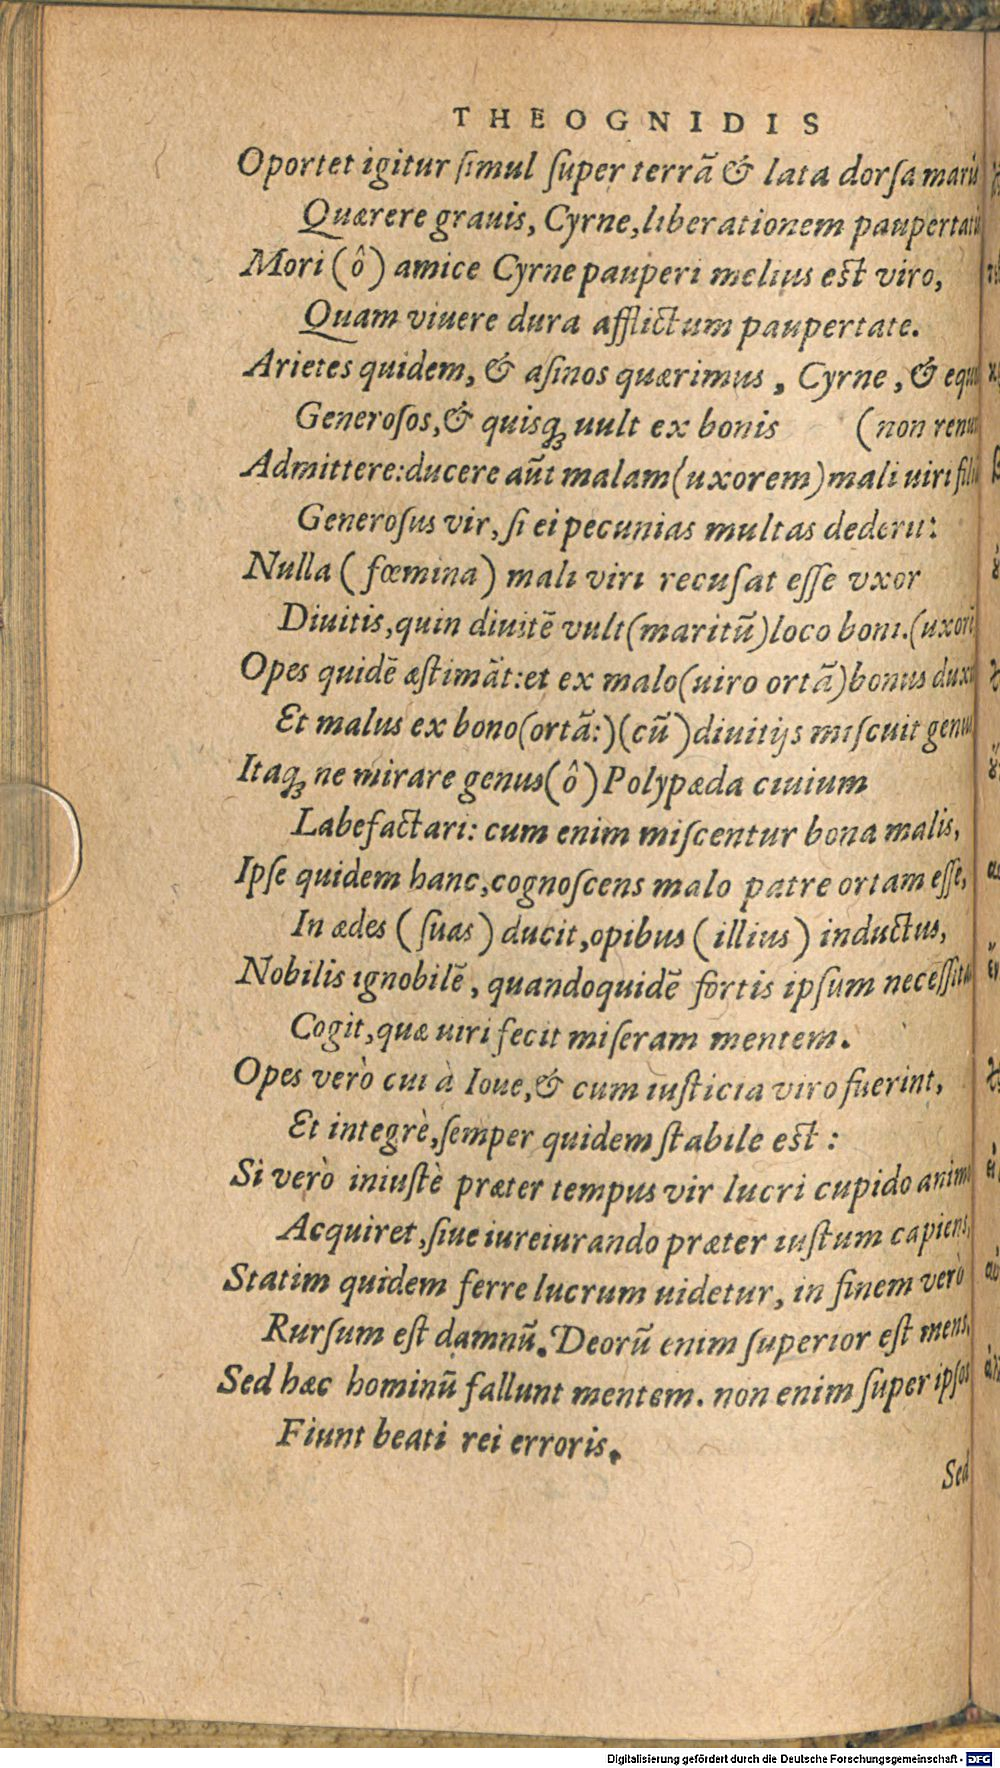 THEOGNIDIS
Oportet igitur ſimul ſuper terrã & lata dorſa maris
Quærere grauis, Cyrne, liberationem paupertatis
Mori (ô) amice Cyrne pauperi melius eſt viro,
Quam viuere dura afflictum paupertate.
Arietes quidem, & aſinos quærimus, Cyrne, &
Generoſos, & quisqꝫ uult ex bonis (non
Admittere: ducere aũt malam (uxorem) mali uiri
Generoſus vir, ſi ei pecunias multas dederit:
Nulla (fœmina) mali viri recuſat eſſe vxor
Diuitis, quin diuitẽ vult (maritũ) loco boni. (uxori
Opes quidẽ æſtimãt: et ex malo (uiro ortã) bonus
Et malus ex bono (ortã:) (cũ) diuitijs miſcuit genus
Itaqꝫ ne mirare genus (ô) Polypæda ciuium
Labefactari: cum enim miſcentur bona malis,
Ipſe quidem hanc, cognoſcens malo patre ortam eſſe,
In ædes (ſuas) ducit, opibus (illius) inductus,
Nobilis ignobilẽ, quandoquidẽ fortis ipſum neceſſitas
Cogit, quæ uiri fecit miſeram mentem.
Opes verò cui à Ioue, & cum iuſticia viro fuerint,
Et integrè, ſemper quidem ſtabile eſt:
Si verò iniuſtè præter tempus vir lucri cupido animo
Acquiret, ſiue iureiurando præter iuſtum capiens,
Statim quidem ferre lucrum uidetur, in finem verò
Rurſum eſt damnũ. Deorũ enim ſuperior eſt mens,
Sed hæc hominũ fallunt mentem. non enim ſuper ipſos
Fiunt beati rei erroris.
Sed
Digitalisierung gefördert durch die Deutsche Forschungsgemeinschaft - DFG